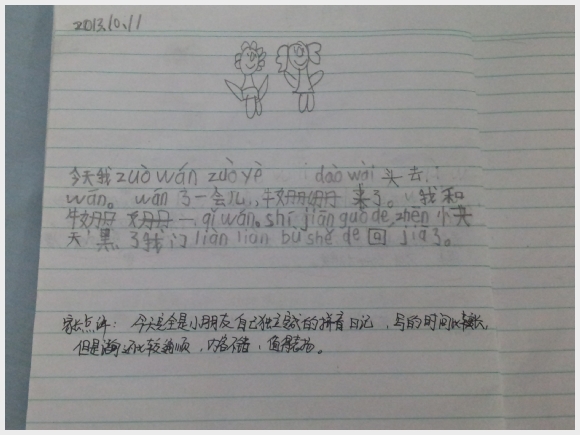 2013.10.11
今天我zuò wán zuò yè dào wài 头去
wán。wán 了一会儿,牡丹丹 来了。我和
牡丹丹 一 qǐ wán。shí jiān guò de zhēn 小
天 黑 了我们 lián lián bù shě de 回 jiā 了。
家长点评:今天是全是小朋友自己独立完成的拼音日记,写的时间比较长,
但是语句还比较通顺,内容不错,值得表扬。